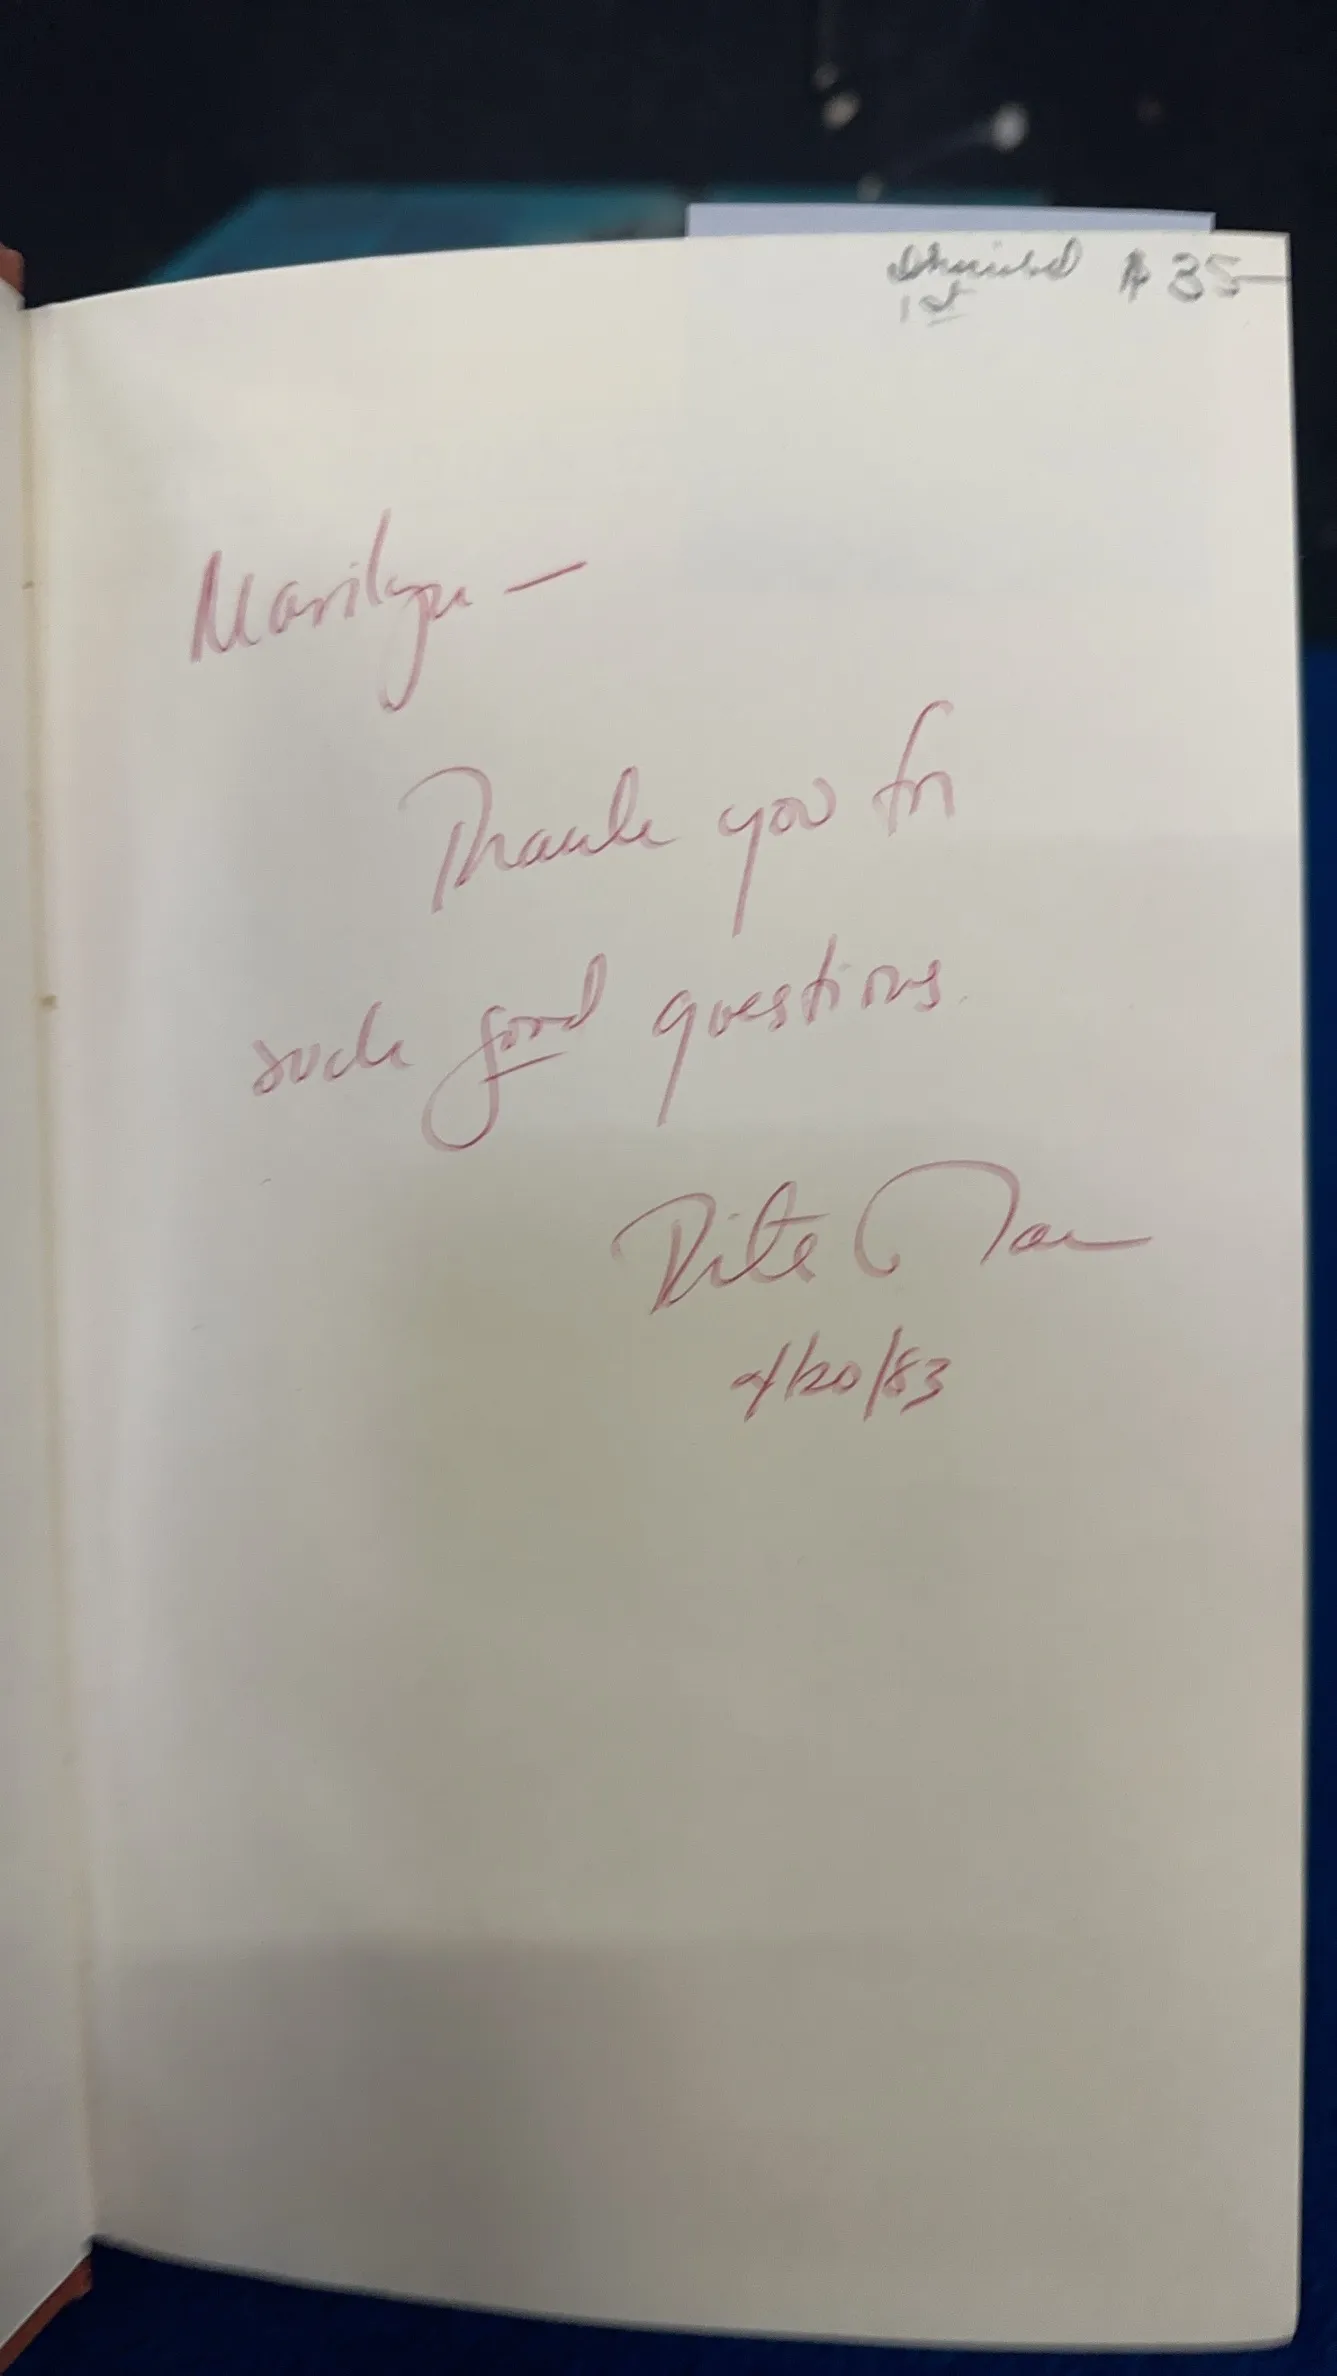 $35-
1st
Marilyn —
Thank you for
such good questions.
Rita Mae
4/20/83